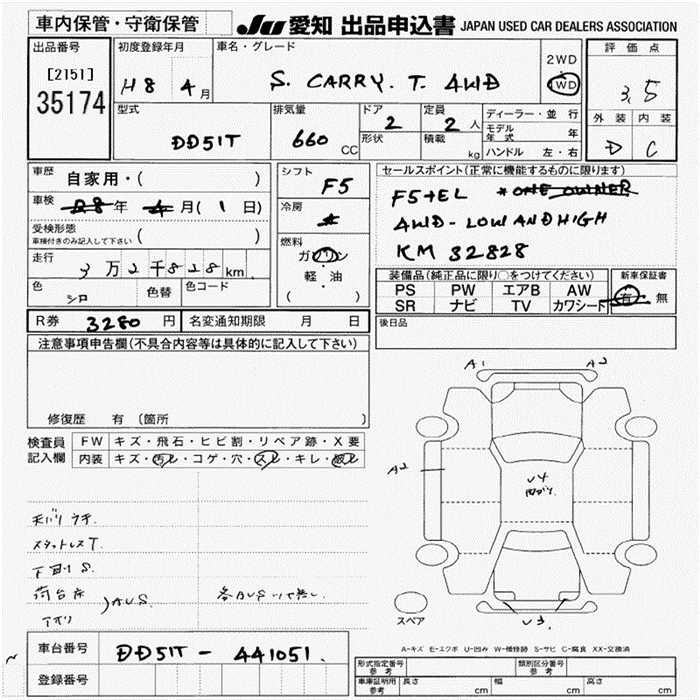 車内保管・守衛保管
JU 愛知 出品申込書 JAPAN USED CAR DEALERS ASSOCIATION
出品番号
[2151]
35174
初度登録年月
H8 4月
車名・グレード
S. CARRY. T. 4WD
2WD
4WD
評価点
3.5
外装 内装
D C
型式
DD51T
排気量
660 CC
ドア
2
形状
定員
2人
積載
kg
ディーラー・並行
モデル年式 年
ハンドル 左・右
車歴
自家用・( )
車検
年 月(1日)
受検形態
車検付きのみ記入して下さい ( )
走行
3万2千828km
色
シロ
色替
色コード
シフト
F5
冷房
燃料
ガソリン
軽・油
( )
セールスポイント(正常に機能するものに限ります)
F5+EL *ONE OWNER
4WD-LOW AND HIGH
KM 32828
装備品(純正品に限り○をつけてください)
PS PW エアB AW
SR ナビ TV カワシート
新車保証書
有・無
後日品
R券 3280円
名変通知期限 月 日
注意事項申告欄(不具合内容等は具体的に記入して下さい)
修復歴 有 (箇所 )
検査員
記入欄
FW キズ・飛石・ヒビ割・リペア跡・X要
内装 キズ・汚レ・コゲ・穴・スレ・キレ・
A1 A2
A2
U4
U3
スタットレスT.
下廻リS.
荷台床
アオリ
)AUS
スペア
A-キズ E-エクボ U-凹み W-補修跡 S-サビ C-腐食 XX-交換済
車台番号
DD51T - 441051.
登録番号
形式指定番号
参考
類別区分番号
参考
車庫証明用
参考
長さ cm
幅 cm
高さ cm